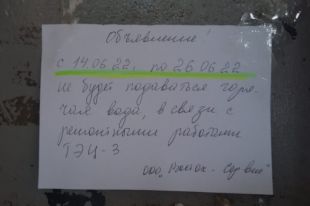 Объявление!
с 14.06.22г. по 26.06.22
не будет подаваться горя-
чая вода, в связи с
ремонтными работами
ТЭЦ-3
ООО, - Сервис"